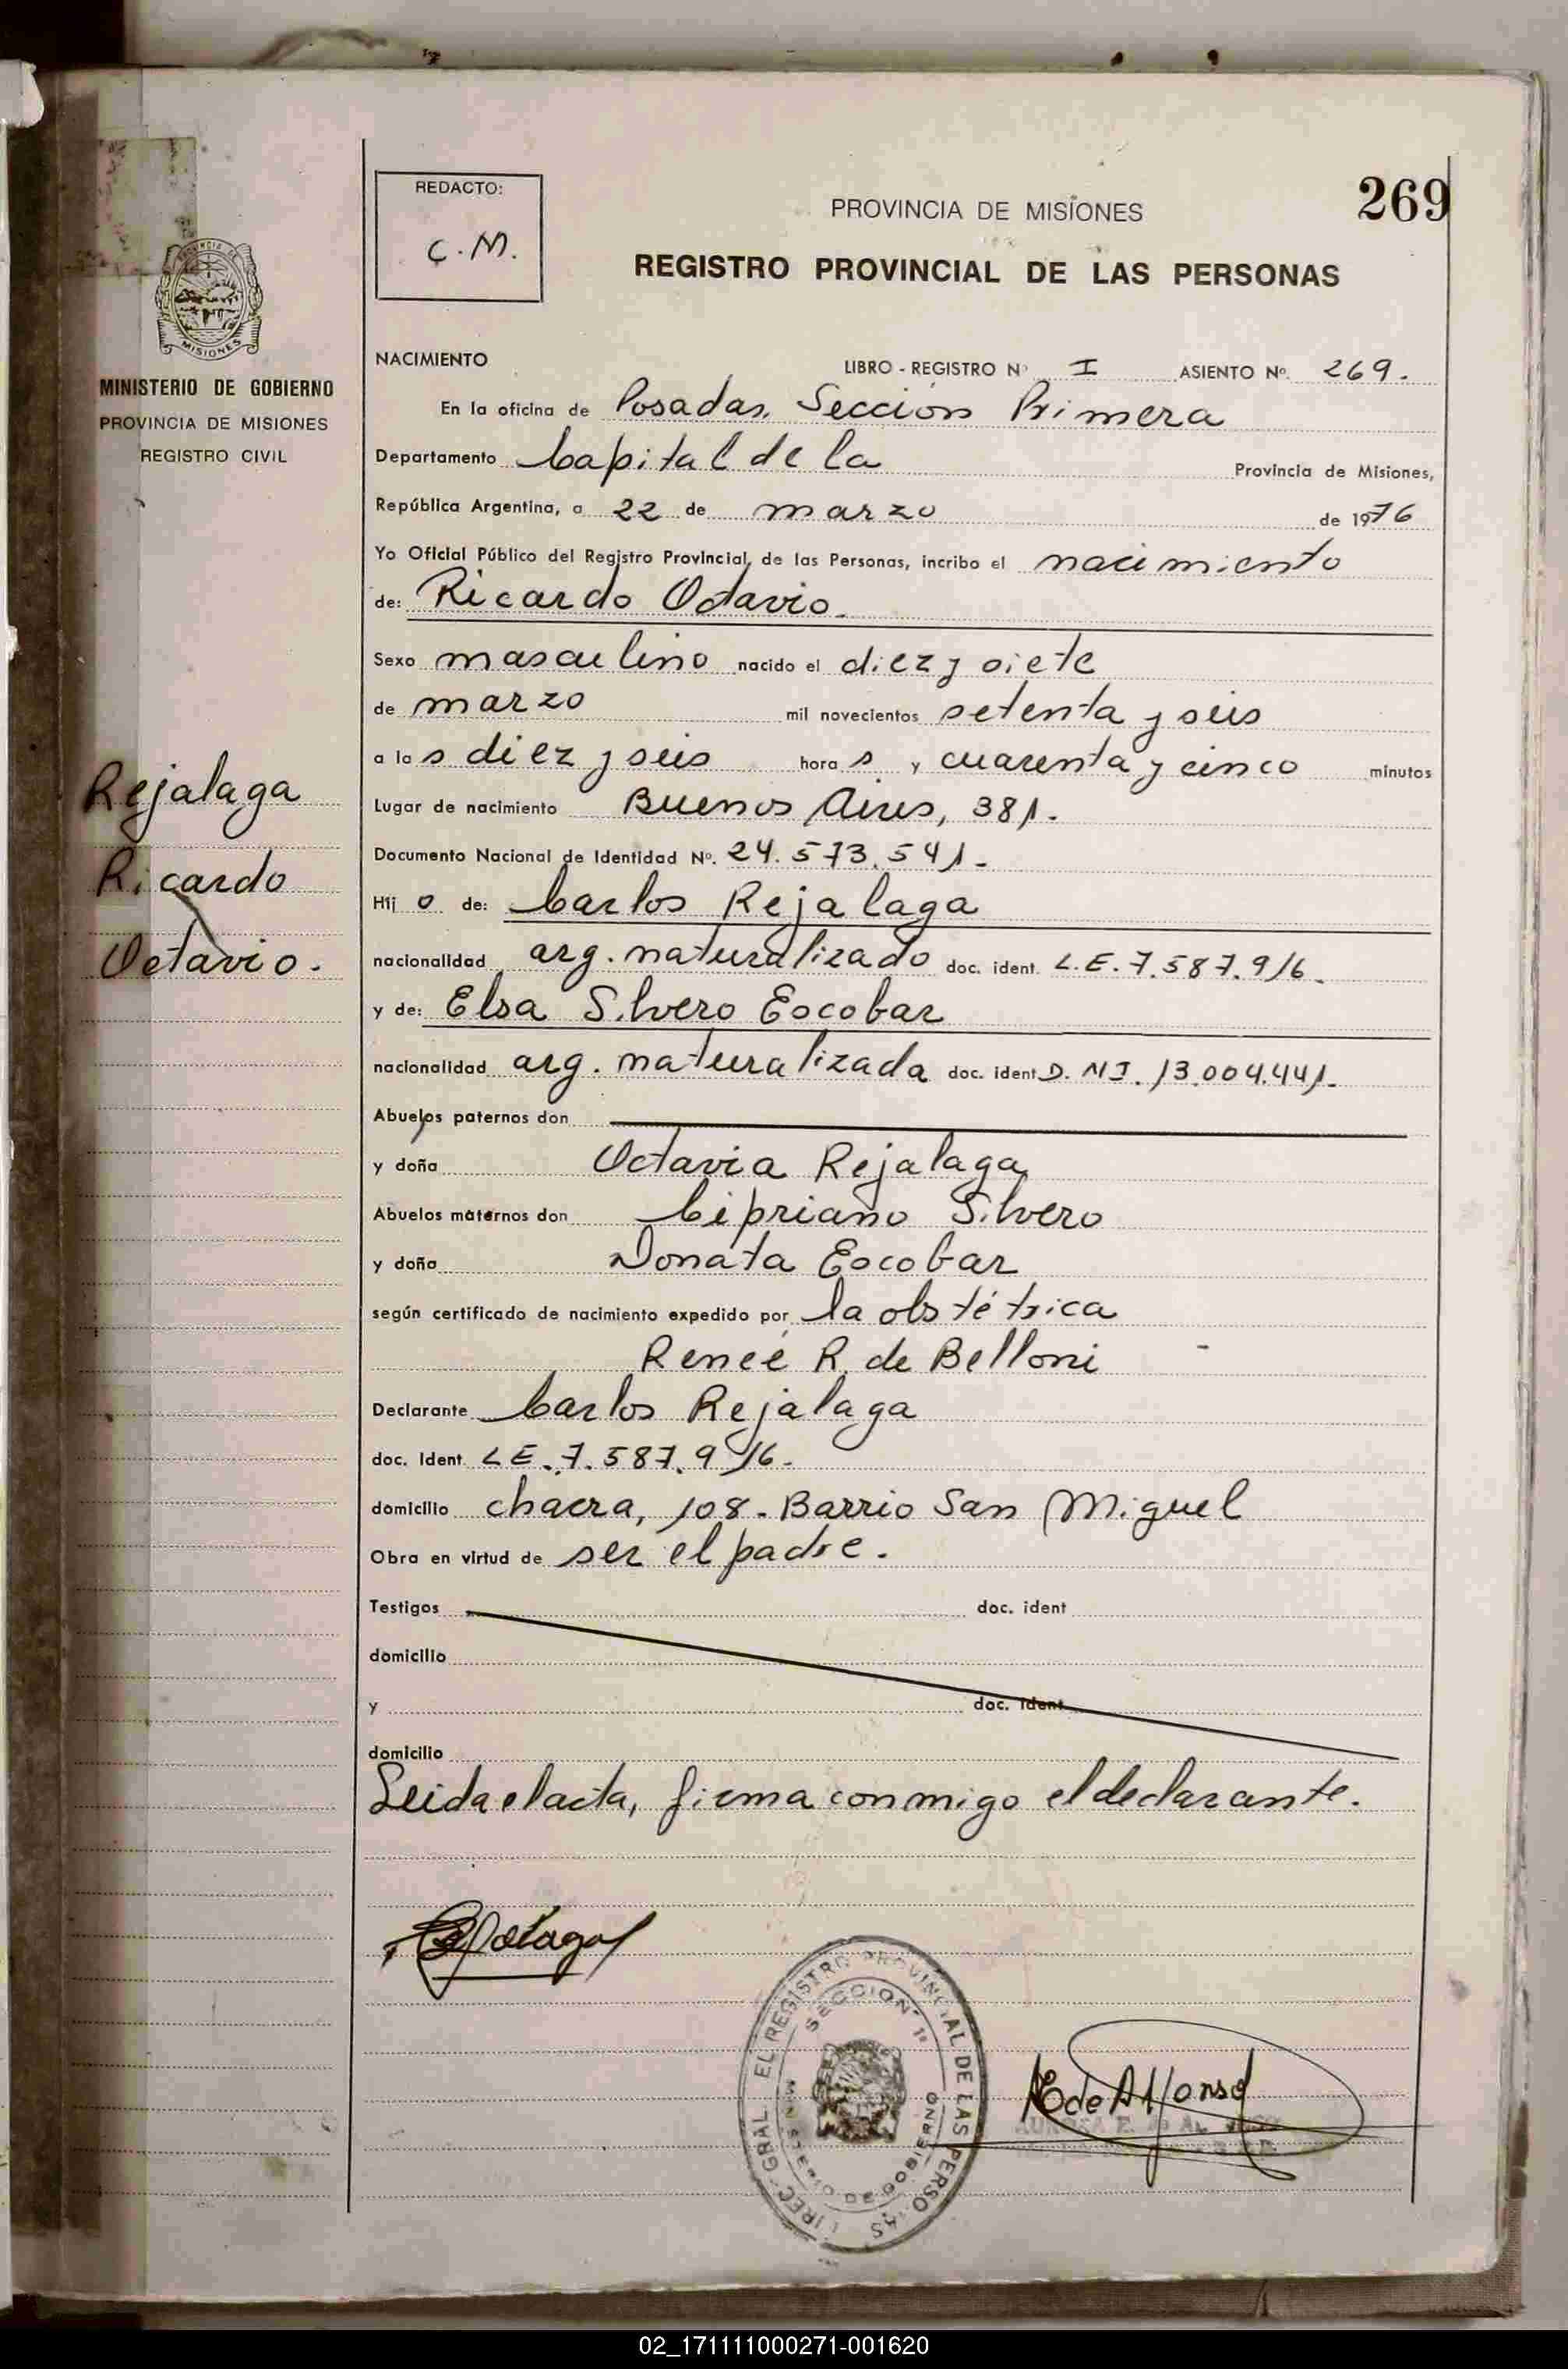 269
REDACTO:
C.M.
PROVINCIA DE MISIONES
REGISTRO PROVINCIAL DE LAS PERSONAS
MISIONES
MINISTERIO DE GOBIERNO
PROVINCIA DE MISIONES
REGISTRO CIVIL
Rejalaga
Ricardo
Octavio.
NACIMIENTO LIBRO - REGISTRO Nº I ASIENTO Nº. 269.
En la oficina de Posadas. Sección Primera
Departamento Capital de la Provincia de Misiones,
República Argentina, a 22 de marzo de 1976
Yo Oficial Público del Registro Provincial, de las Personas, incribo el nacimiento
de: Ricardo Octavio.
Sexo masculino nacido el diez y siete
de marzo mil novecientos setenta y seis
a las diez y seis horas y cuarenta y cinco minutos
Lugar de nacimiento Buenos Aires, 381.
Documento Nacional de Identidad Nº. 24.573.541.
Hijo de: Carlos Rejalaga
nacionalidad arg. naturalizado doc. ident. L.E. 7.587.916.
y de: Elsa Silvero Escobar
nacionalidad arg. naturalizada doc. ident D.NI. 13.004.441.
Abuelos paternos don
y doña Octavia Rejalaga
Abuelos maternos don Cipriano Silvero
y doña Donata Escobar
según certificado de nacimiento expedido por la obstétrica
Reneé R. de Belloni
Declarante Carlos Rejalaga
doc. Ident. LE. 7.587.916.
domicilio chacra, 108. Barrio San Miguel
Obra en virtud de ser el padre.
Testigos doc. ident
domicilio
y doc. ident
domicilio
Leida el acta, firma conmigo el declarante.
DIREC. GRAL. EL REGISTRO PROVINCIAL DE LAS PERSONAS
SECCION 1ª
MINISTERIO DE GOBIERNO
02_171111000271-001620